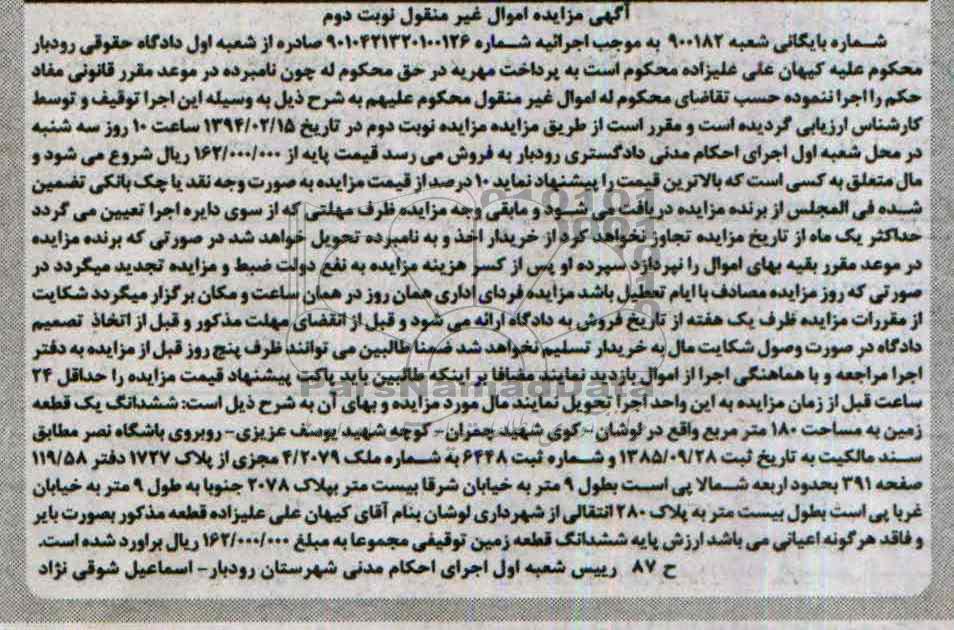 آگهی مزایده اموال غیر منقول نوبت دوم
شماره بایگانی شعبه ۹۰۰۱۸۲ به موجب اجرائیه شماره ۹۰۱۰۴۲۱۳۲۰۱۰۰۱۲۶ صادره از شعبه اول دادگاه حقوقی رودبار
محکوم علیه کیهان علی علیزاده محکوم است به پرداخت مهریه در حق محکوم له چون نامبرده در موعد مقرر قانونی مفاد
حکم را اجرا ننموده حسب تقاضای محکوم له اموال غیر منقول محکوم علیهم به شرح ذیل به وسیله این اجرا توقیف و توسط
کارشناس ارزیابی گردیده است و مقرر است از طریق مزایده مزایده نوبت دوم در تاریخ ۱۳۹۴/۰۲/۱۵ ساعت ۱۰ روز سه شنبه
در محل شعبه اول اجرای احکام مدنی دادگستری رودبار به فروش می رسد قیمت پایه از ۱۶۲/۰۰۰/۰۰۰ ریال شروع می شود و
مال متعلق به کسی است که بالاترین قیمت را پیشنهاد نماید ۱۰ درصد از قیمت مزایده به صورت وجه نقد یا چک بانکی تضمین
شده فی المجلس از برنده مزایده دریافت می شود و مابقی وجه مزایده ظرف مهلتی که از سوی دایره اجرا تعیین می گردد
حداکثر یک ماه از تاریخ مزایده تجاوز نخواهد کرد از خریدار اخذ و به نامبرده تحویل خواهد شد در صورتی که برنده مزایده
در موعد مقرر بقیه بهای اموال را نپردازد سپرده او پس از کسر هزینه مزایده به نفع دولت ضبط و مزایده تجدید میگردد در
صورتی که روز مزایده مصادف با ایام تعطیل باشد مزایده فردای اداری همان روز در همان ساعت و مکان برگزار میگردد شکایت
از مقررات مزایده ظرف یک هفته از تاریخ فروش به دادگاه ارائه می شود و قبل از انقضای مهلت مذکور و قبل از اتخاذ تصمیم
دادگاه در صورت وصول شکایت مال به خریدار تسلیم نخواهد شد ضمنا طالبین می توانند ظرف پنج روز قبل از مزایده به دفتر
اجرا مراجعه و با هماهنگی اجرا از اموال بازدید نمایند مضافا بر اینکه طالبین باید پاکت پیشنهاد قیمت مزایده را حداقل ۲۴
ساعت قبل از زمان مزایده به این واحد اجرا تحویل نمایند مال مورد مزایده و بهای آن به شرح ذیل است: ششدانگ یک قطعه
زمین به مساحت ۱۸۰ متر مربع واقع در لوشان - کوی شهید چمران - کوچه شهید یوسف عزیزی- روبروی باشگاه نصر مطابق
سند مالکیت به تاریخ ثبت ۱۳۸۵/۰۹/۲۸ و شماره ثبت ۶۴۴۸ به شماره ملک ۴/۲۰۷۹ مجزی از پلاک ۱۷۲۷ دفتر ۱۱۹/۵۸
صفحه ۳۹۱ بحدود اربعه شمالا پی است بطول ۹ متر به خیابان شرقا بیست متر بپلاک ۲۰۷۸ جنوبا به طول ۹ متر به خیابان
غربا پی است بطول بیست متر به پلاک ۲۸۰ انتقالی از شهرداری لوشان بنام آقای کیهان علی علیزاده قطعه مذکور بصورت بایر
و فاقد هرگونه اعیانی می باشد ارزش پایه ششدانگ قطعه زمین توقیفی مجموعا به مبلغ ۱۶۲/۰۰۰/۰۰۰ ریال براورد شده است.
ح ۸۷ رییس شعبه اول اجرای احکام مدنی شهرستان رودبار- اسماعیل شوقی نژاد
ParsNamadData